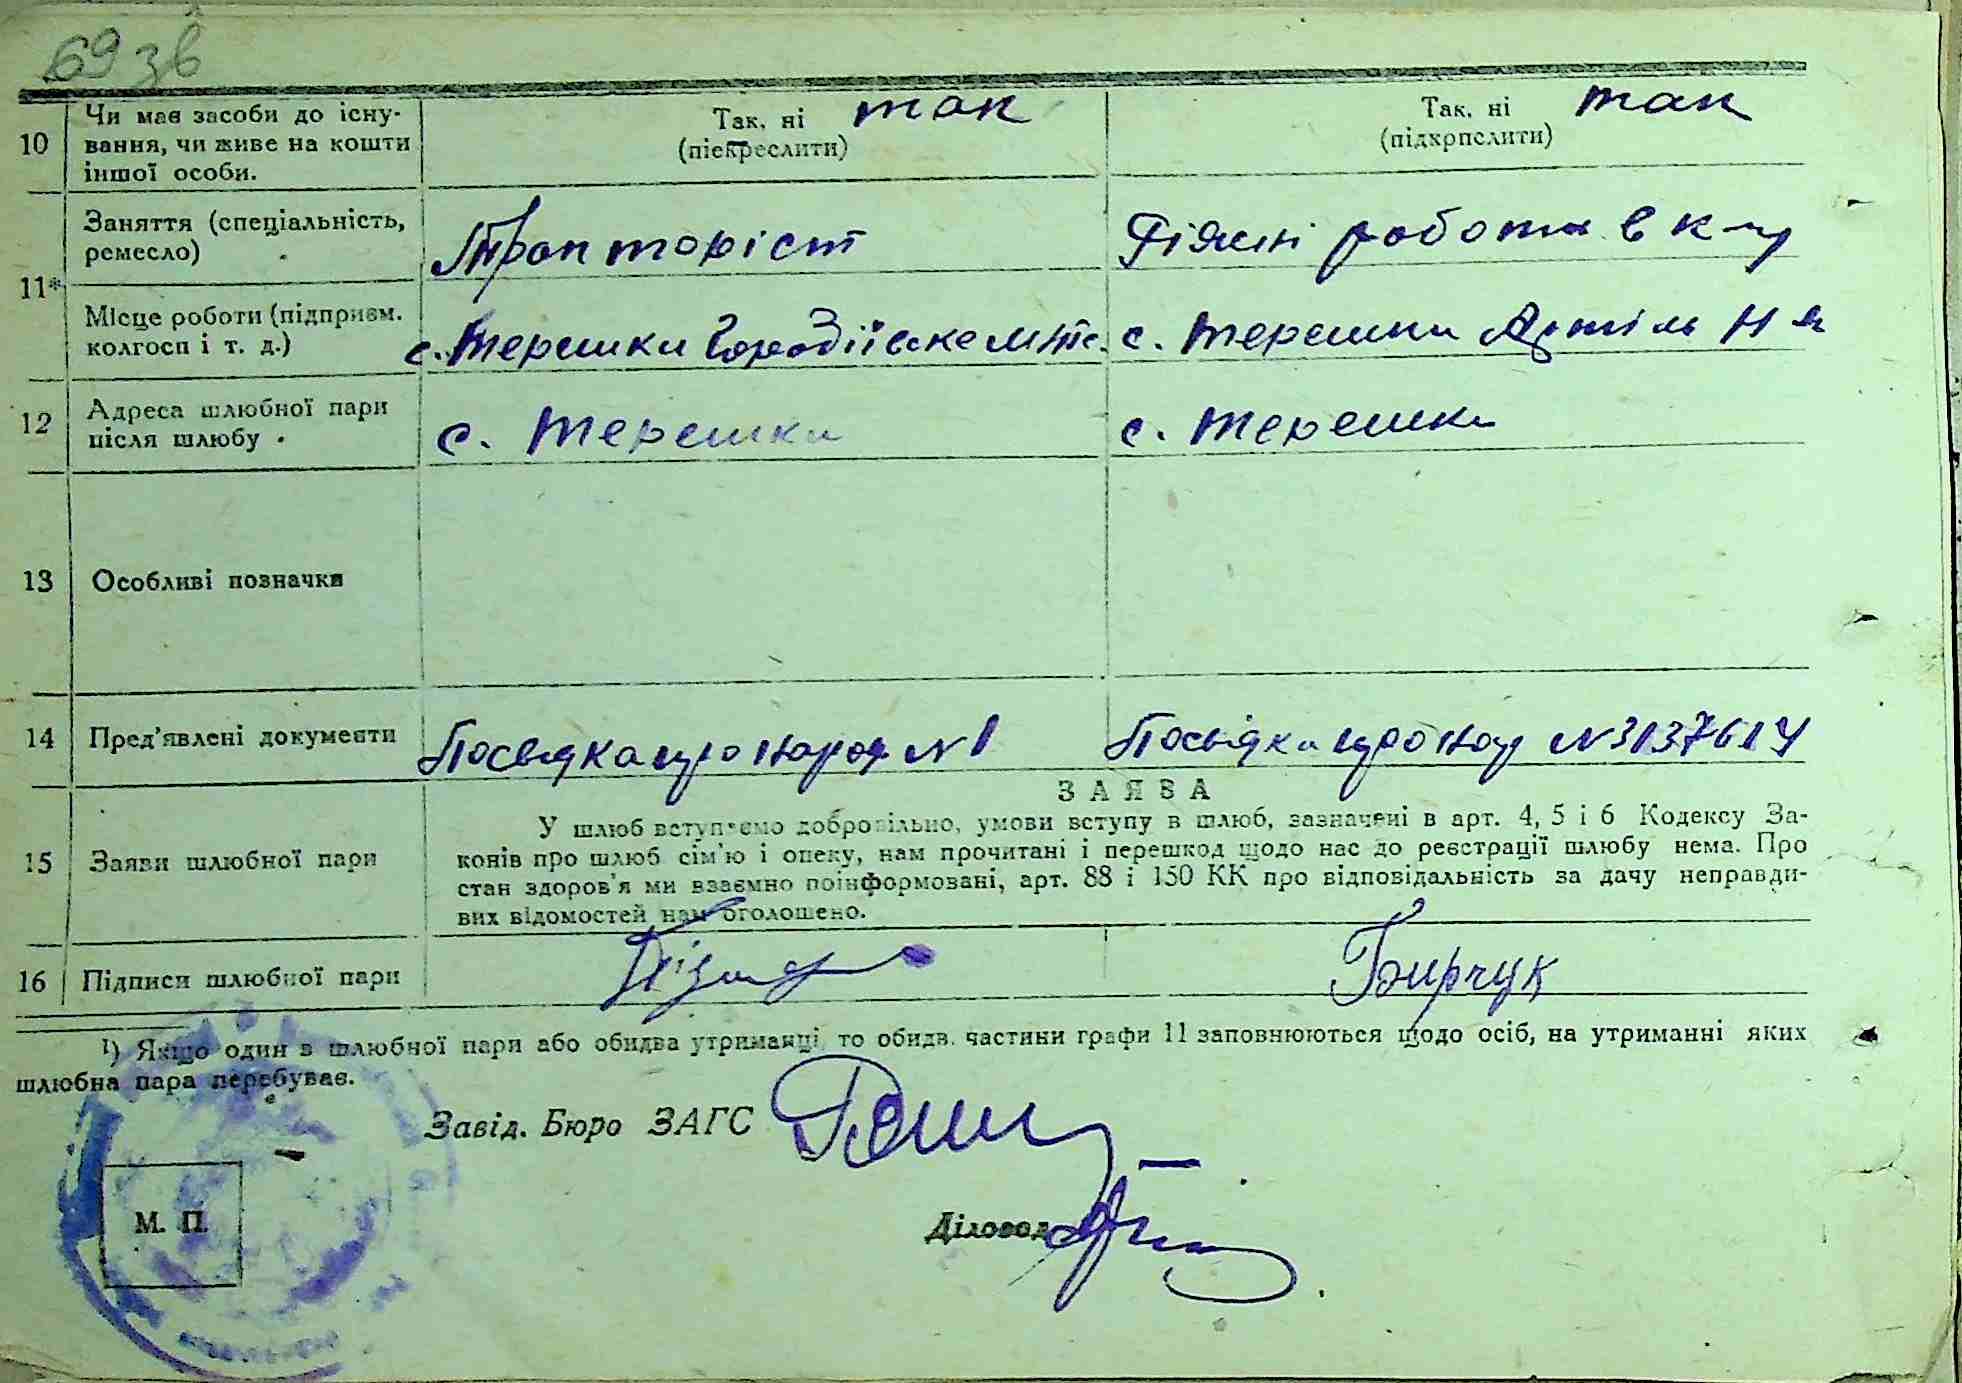 69 зв
10 Чи має засоби до існу-
вання, чи живе на кошти
іншої особи.
Так, ні так
(піекреслити)
Так, ні так
(підхрпслити)
11*
Заняття (спеціальність,
ремесло)
Трапторіст
Різні робота в к-
Місце роботи (підприєм.
колгосп і т. д.)
с. Терешки
с. Терешки Артіль
12 Адреса шлюбної пари
після шлюбу
с. Терешки
с. Терешки
13 Особливі позначки
14 Пред'явлені документи
Посвідка про народ №1
Посвідка про №3137614
15 Заяви шлюбної пари
ЗАЯВА
У шлюб вступаємо добровільно, умови вступу в шлюб, зазначені в арт. 4, 5 і 6 Кодексу За-
конів про шлюб сім'ю і опеку, нам прочитані і перешкод щодо нас до реєстрації шлюбу нема. Про
стан здоров'я ми взаємно поінформовані, арт. 88 і 150 КК про відповідальність за дачу неправди-
вих відомостей нам оголошено.
16 Підписи шлюбної пари
Бирчук
¹) Якщо один в шлюбної пари або обидва утриманці то обидв. частини графи 11 заповнюються щодо осіб, на утриманні яких
шлюбна пара перебуває.
Завід. Бюро ЗАГС
М. П.
Діловод